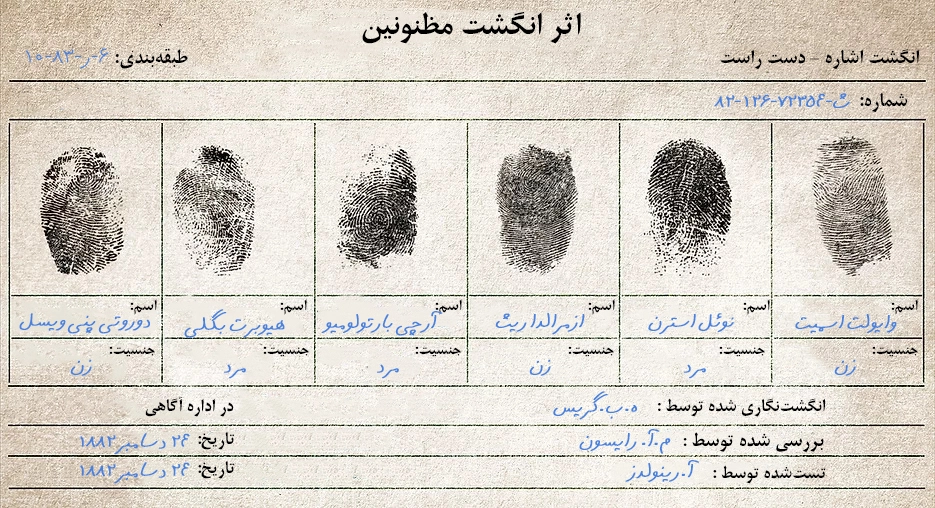 اثر انگشت مظنونین
انگشت اشاره - دست راست
طبقه‌بندی: ۶-ر-۸۳-۱۰
شماره: ث-۷۲۳۵۴-۱۲۶-۸۲
اسم: وایولت اسمیت
جنسیت: زن
اسم: نوئل استرن
جنسیت: مرد
اسم: ازمرالدا ریث
جنسیت: زن
اسم: آرچی بارتولومیو
جنسیت: مرد
اسم: هیوبرت بگلی
جنسیت: مرد
اسم: دوروتی پنی ویسل
جنسیت: زن
انگشت‌نگاری شده توسط: ه.ب.گریس
در اداره آگاهی
بررسی شده توسط: م.آ.رایسون
تاریخ: ۲۴ دسامبر ۱۸۸۲
تست‌شده توسط: آ.رینولدز
تاریخ: ۲۴ دسامبر ۱۸۸۲